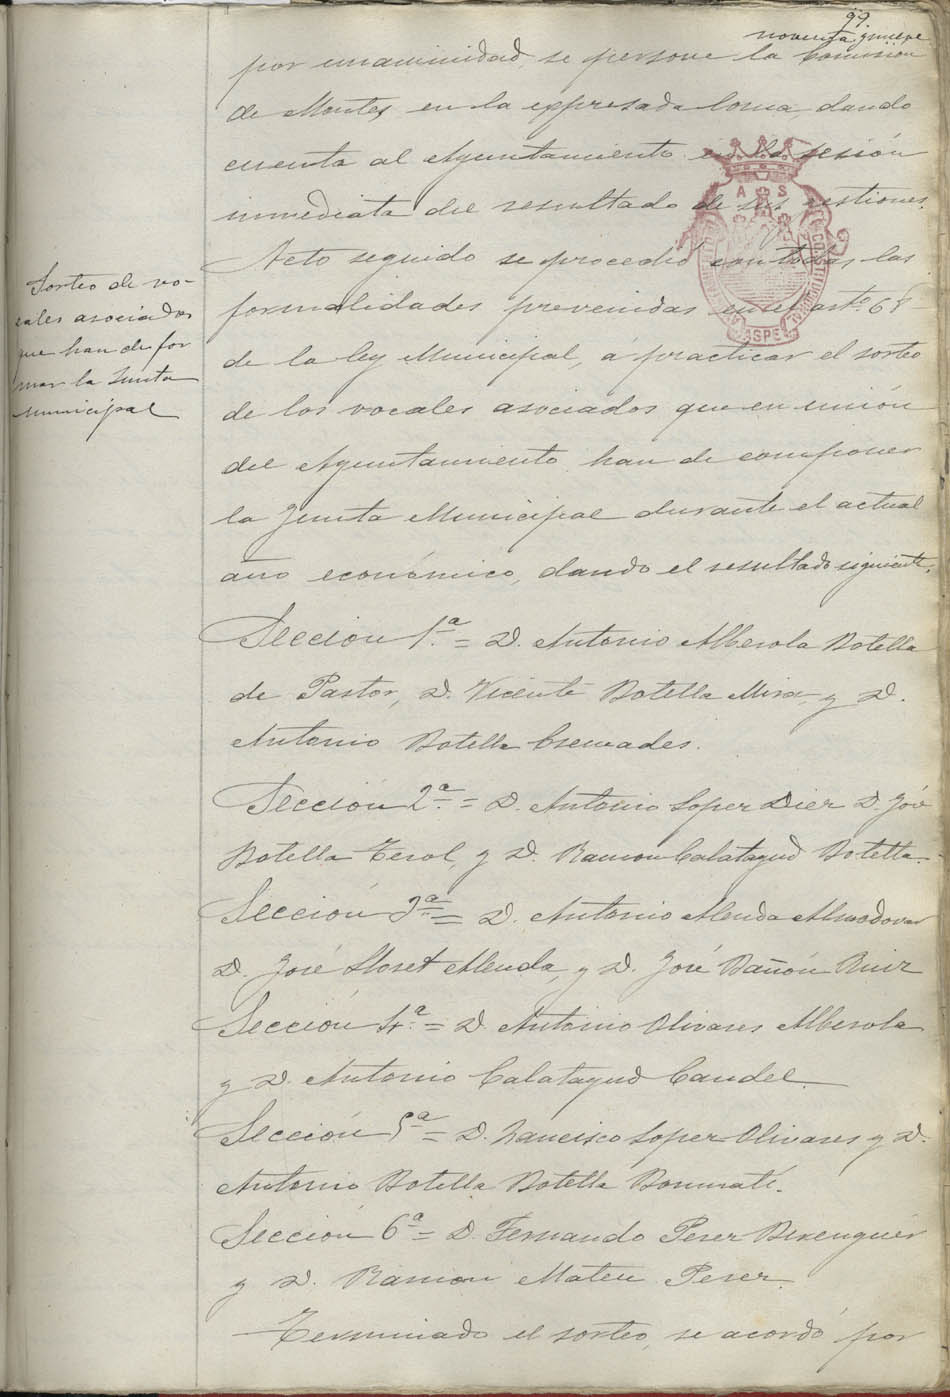 99.
noventa y nueve
por unanimidad, se persone la Comisión
de Montes en la expresada loma, dando
cuenta al Ayuntamiento en la sesión
inmediata del resultado de sus gestiones.
Sorteo de vo-
cales asociados
que han de for
mar la Junta
municipal
Acto seguido se procedió con todas las
formalidades prevenidas en el artº 68
de la ley Municipal, á practicar el sorteo
de los vocales asociados que en unión
del Ayuntamiento han de componer
la Junta Municipal durante el actual
año económico, dando el resultado siguiente.
Sección 1ª = D. Antonio Alberola Botella
de Pastor, D. Vicente Botella Mira, y D.
Antonio Botella Cremades.
Sección 2ª = D. Antonio Soper Dier D. José
Botella Terol, y D. Ramon Calatayud Botella.
Sección 3ª = D. Antonio Alenda Almodovar
D. José Lloret Alenda, y D. José Bañón Ruiz
Sección 4ª = D. Antonio Olivares Alberola
y D. Antonio Calatayud Candel.
Sección 5ª = D. Francisco Soper Olivares y D.
Antonio Botella Botella Bonmatí.
Sección 6ª = D. Fernando Perer Berenguer
y D. Ramon Mateu Perer.
Terminado el sorteo, se acordó por